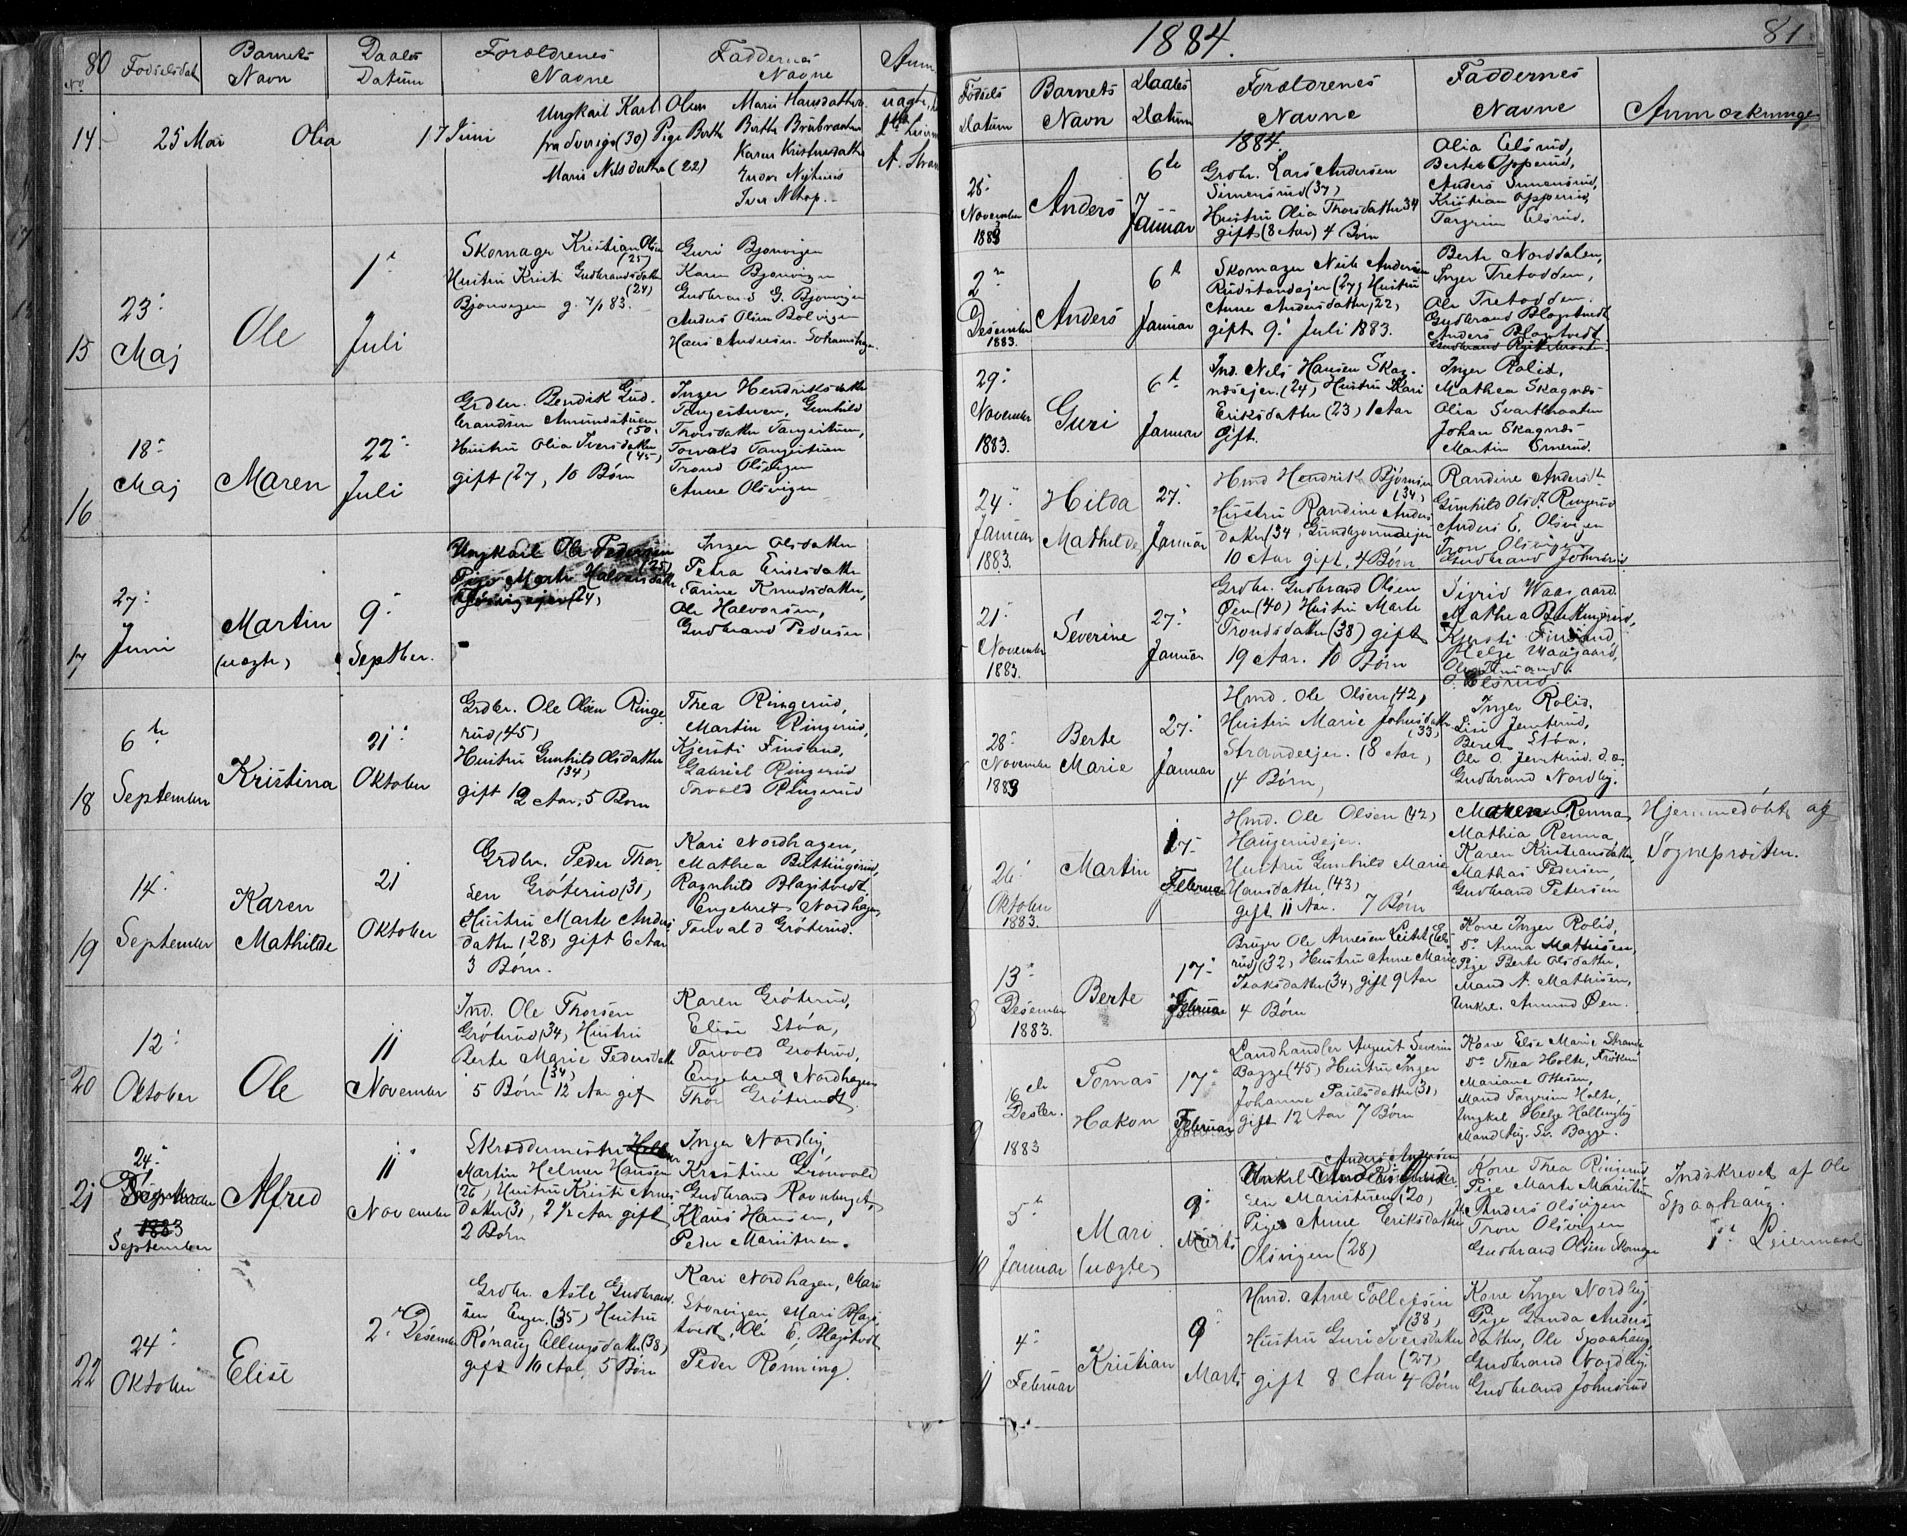 80
No
Fødselsdat
Barnets
Navn
Daabs
Datum
Forældrenes
Navne
Faddernes
Navne
Anm
14
25 Mai
Olia
17 Juni
Ungkarl Karl Olsen
fra Sverige (30) Pige Berthe
Marie Nilsdatter (22)
Marie Hansdatter
Berthe Bråbraaten
Karen Kristiansdatter
Iver Altop.
uægte,
A. Stran
15
23:
Maj
Ole
1:
Juli
Skomager Kristian Olsen
(25)
Hustru Kristi Gudbrandsdatter
(24)
Bjonvigen g. 4/1 83.
Guri Bjonvigen
Karen Bjonvigen
Gudbrand G. Bjonvigen
Anders Olsen Bolvigen
Hans Andersen
16
18:
Maj
Maren
22:
Juli
Grdbr. Bendik Gud
brandsen Amundstuen
(50)
Hustru Olia Iversdatter
(45)
gift (27, 10 Børn
Inger Hendriksdatter
Tangestuen, Gunhild
Thorsdatter Tangestuen,
Torvald Tangestuen
Trond Olsvigen
Anne Olsvigen
17
27:
Juni
Martin
(uægte)
9:
Septber.
Ungkarl Ole Pedersen
(25)
Pige Marte Halvorsdatter
(24)
Inger Olsdatter
Petra Eriksdatter
Karine Knudsdatter,
Ole Halvorsen,
Gudbrand Pedersen
18
6te
September
Kristina
21:
Oktober
Grdbr. Ole Olsen Ringe
rud (45)
Hustru Gunhild Olsdatter
(34)
gift 12 Aar, 5 Børn
Thea Ringerud,
Martin Ringerud,
Kjersti Finsand,
Gabriel Ringerud
Torvald Ringerud
19
14:
September
Karen
Mathilde
21
Oktober
Grdbr. Peder Thor
sen Grøterud (31)
Hustru Marte Anders
datter (28) gift 6 Aar
3 Børn.
Kari Nordhagen,
Mathea Buttingsrud,
Ragnhild Blagstvedt
Engebret Nordhagen
Torvald Grøterud.
20
12:
Oktober
Ole
11
November
Ind. Ole Thorsen
Grøterud (34, Hustru
Berte Marie Pedersdatter
(34)
5 Børn 12 Aar gift
Karen Grøterud,
Elise Støa,
Torvald Grøterud,
Engebret Nordhagen
Thor Grøterud
21
24:
1883
September
Alfred
11
November
Skræddermester
Martin Helmer Hansen
(26, Hustru Kristi Arnes
datter (31, 2 1/2 Aar gift
2 Børn
Inger Nordby,
Kristine Grønvold
Gudbrand Ravnberget,
Klaus Hansen,
Peder Maristuen.
22
24:
Oktober
Elise
2: Desember
Grdbr. Asle Gudbrand
sen Enger (35) Hustru
Rønaug Ellingsdatter (38)
gift 10 Aar, 5 Børn
Kari Nordhagen, Mari
Storvigen, Mari Blag
tvedt, Ole E. Blagstvedt
Peder Rønning.
1884.
81
Fødsels
Datum
Barnets
Navn
Daabs
Datum
Forældrenes
Navne
Faddernes
Navne
Anmærkninge
1884
28:
November
1883
Anders
6te
Januar
Grdbr. Lars Andersen
Simensrud (37)
Hustru Olia Thorsdatter 34
gift (8 Aar) 4 Børn
Olia Elsrud,
Berthe Opperud,
Anders Simensrud,
Kristian Opperud,
Torgrim Elsrud.
2
Desember
1883.
Anders
6t
Januar
Skomager Nils Andersen
Rudstøndejer (27) Hustru
Anne Andersdatter (22)
gift 9: Juli 1883.
Berte Norddalen,
Inger Tretodden,
Ole Tretodden.
Gudbrand Blagstvedt
Anders Blagstvedt
29:
November
1883.
Guri
6t
Januar
Ind. Nils Hansen Skag
næsejer (24) Hustru Kari
Eriksdatter (23) 1 Aar
Gift.
Inger Rolid,
Mathea Skagnæs
Olia Svartbraaten
Johan Skagnæs
Martin Elsrud.
24:
Januar
1883.
Hilda
Mathilde
27:
Januar
Hmd Hendrik Bjørnsen
(34)
Hustru Randine Anders
datter (34,
10 Aar gift. 4 Børn
Randine Andersdt
Gunhild Olsdt. Ringerud
Anders E. Olsvigen
Tron Olsvigen
Gudbrand Johnsrud
21:
November
1883.
Severine
27:
Januar
Grdbr. Gudbrand Olsen
Øen (40) Hustru Marte
Trondsdatter (38) gift
19 Aar. 10 Børn
Sigrid Waagaard.
Mathea Buttingsrud,
Kjersti Finsand,
Helge Waagaard,
Ole Finsand.
O. Elsrud.
28:
November
1883
Berte
Marie
27:
Januar
Hmd. Ole Olsen (42,
Hustru Marie Johnsdatter
(33)
Strandeejer. (8 Aar,
(4 Børn)
Inger Rolid,
Lise Jenserud,
Beret Støa,
Ole O. Jenserud. d.æ.
Gudbrand Nordby.
7
26:
Oktober
1883.
Martin
17:
Februar
Hmd. Ole Olsen (42)
Haugerudejer.
Hustru Gunhild Marie
Hansdatter (43)
gift 11 Aar. 7 Børn
Maren Renna,
Mathia Renna,
Karen Kristiansdatter,
Mathias Pedersen,
Gudbrand Petersen
Hjemmedøbt af
Sognepræsten.
8
13:
Desember
1883.
Berte
17:
Februar
Bruger Ole Arnesen Leitet (Els
rud) (32) Hustru Anne Marie
Isaksdatter (34) gift 9 Aar
4 Børn
Kone Inger Rolid,
Do Anna Mathisen,
Pige Berte Olsdatter,
Mand A. Mathisen,
Unkrl. Amund Øen.
9
16de
Desbr.
1883
Tomas
Hakon
17:
Februar
Landhandler August Severin
Bagge (45) Hustru Inger
Johanne Paulsdatter (31)
gift 12 Aar 7 Børn
Kone Else Marie Strande
Do Thea Holte, Frøken
Mariane Ottesen,
Mand Torgrim Holte,
Ungkrl Helge Hallingby
Mand Aug. Sv. Bagge.
10
5t
Januar
Mari
(uægte)
9:
Marts
Anders Andersen
Unkrl
sen Maristuen (20)
Pige Anne Eriksdatter
Olsvigen (28)
Kone Thea Ringerud
Pige Marte Maristuen
Anders Olsvigen
Tron Olsvigen
Gudbrand Olsen Skomager
Indskrevet af Ole
Spaahaug.
1t Leiermaal
11
4:
Februar
Kristian
9:
Marts
Hmd. Arne Tollefsen
(38)
Hustru Guri Iversdatter
(27)
gift 8 Aar 4 Børn
Kone Inger Nordby,
Pige Landa Anders
datter, Ole Spaahaug
Gudbrand Nordby.
Gudbrand Johnsrud